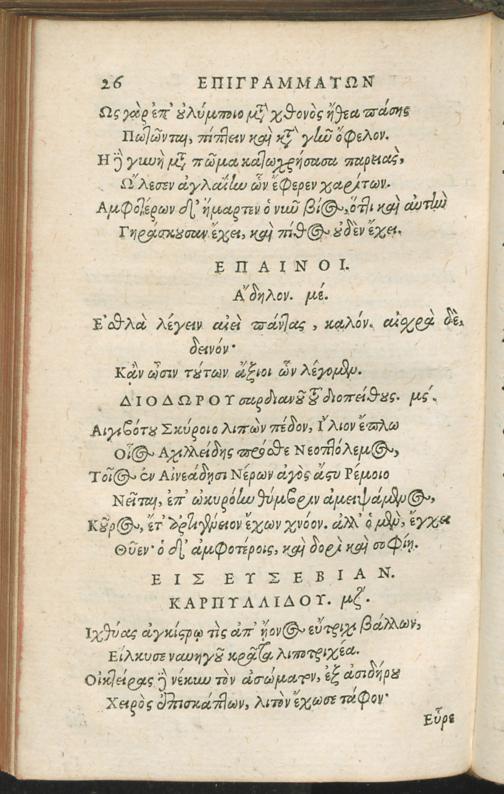 26 ΕΠΙΓΡΑΜΜΑΤΩΝ
Ως γὰρ ἐπ' ὀλύμποιο μτ̀ χθονὸς ἤθεα πάσης
Πωλῶνται, πίπτειν καὶ κτ̀ γίω ὄφελον.
Η ἢ γιωὴ μτ̀ πῶμα κατωχρήσασα παρειας,
Ωλεσεν ἀγλαΐίω ὧν ἔφερεν χαρίτων.
Αμφοτέρων δ' ἥμαρτεν ὁ νιῶ βίος, ὅτι καὶ αὐτίω
Γηράσκουσαν ἔχει, καὶ πίθος οὐδὲν ἔχει.
ΕΠΑΙΝΟΙ.
Α῎δηλον. μέ.
Ε᾽σθλὰ λέγειν αἰεὶ πάντας, καλόν. αἰσχρὰ δὲ,
δεινόν·
Κἂν ὦσιν τούτων ἄξιοι ὧν λέγομεν.
ΔΙΟΔΩΡΟΥ σαρδιανοῦ τοῦ διοπείθους. μς.
Αιγιβότου Σκύροιο λιπὼν πέδον, Ι῎λιον ἔπλω
Οἷος Αχιλλείδης πρόσθε Νεοπτόλεμος,
Τοῖος ἐν Αἰνεάδησι Νέρων ἀγὸς ἄστυ Ρέμοιο
Νεῖται, ἐπ' ὠκυρόίω θύμβριν ἀμειψάμενος,
Κοῦρος, ἔτ' ἀρτιγένειον ἔχων χνόον. ἀλλ' ὁ μὲν, ἔγχει
Θῦεν· ὁ δ' ἀμφοτέροις, καὶ δορὶ καὶ σοφίῃ.
ΕΙΣ ΕΥΣΕΒΙΑΝ.
ΚΑΡΠΥΛΛΙΔΟΥ. μζ.
Ιχθύας ἀγκίστρῳ τὶς ἀπ' ἠόνος εὔτριχι βάλλων,
Εἵλκυσε ναυηγοῦ κρᾶτα λιποτριχέα.
Οἰκτείρας ἢ νέκιω τὸν ἀσώματον, ἐξ ἀσιδήρου
Χειρὸς ἐπισκάπτων, λιτὸν ἔχωσε τάφον·
Εὗρε